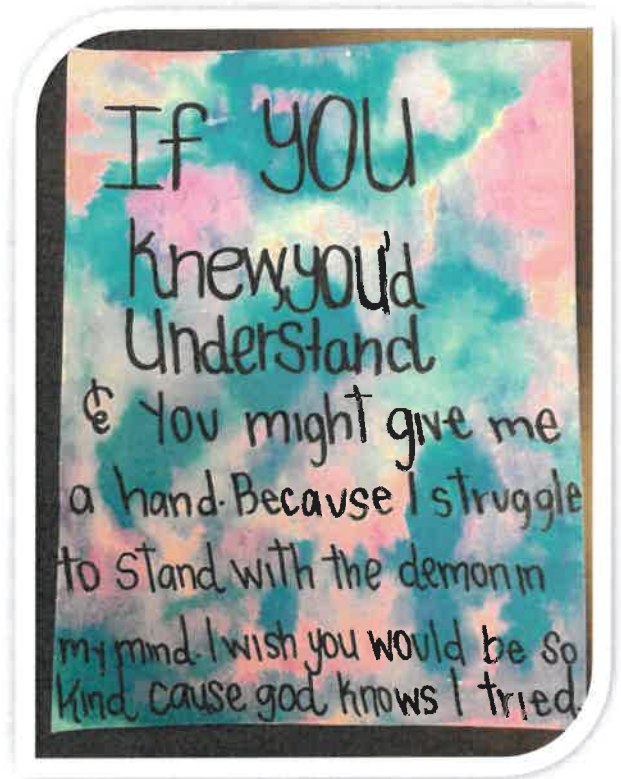 If YOU
Knew,you'd
Understand
& You might give me
a hand. Because I struggle
to Stand with the demon in
my mind. I wish you would be so
kind cause god knows I tried.